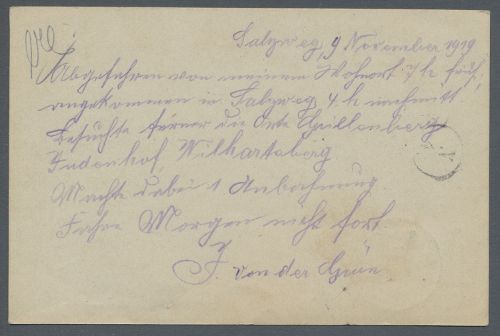 Salzweg, 9 November 1919
Abgefahren von meinem Wohnort 7 h früh,
angekommen in Salzweg 4 h nachmitt
Besuchte ferner die Orte Grillenberg
Judenhof, Wilhartsberg
Machte dabei 1 Anbahnung.
Fahre Morgen nicht fort
F. von der Grün